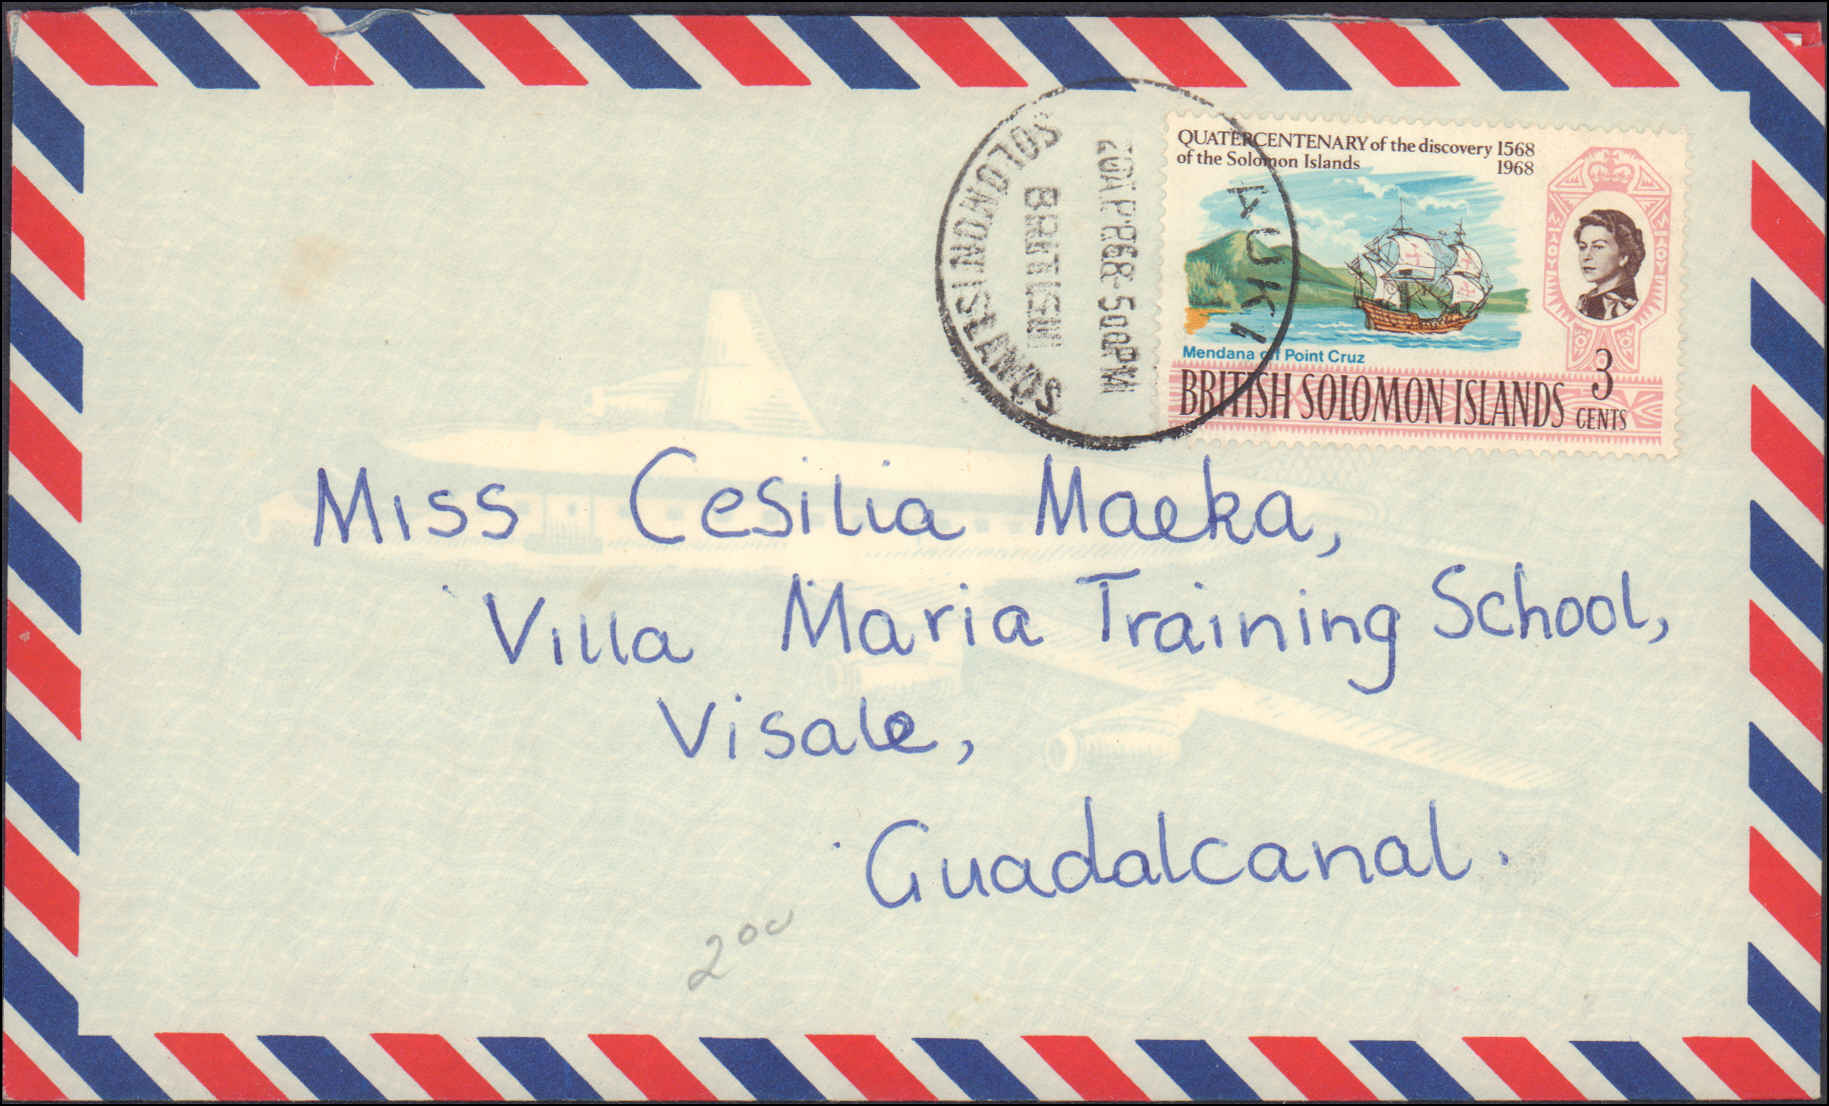 QUATERCENTENARY of the discovery 1568
of the Solomon Islands 1968
Mendana off Point Cruz
BRITISH SOLOMON ISLANDS 3 CENTS
AUKI
BRITISH
SOLOMON ISLANDS
Miss Cesilia Maeka,
Villa Maria Training School,
Visale,
Guadalcanal.
200